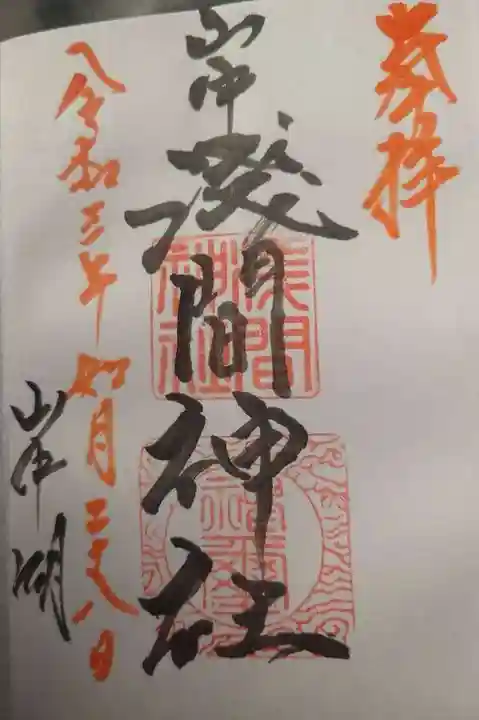 奉拝
山中浅間神社
浅間神社
令和三年如月二十八日
山中湖